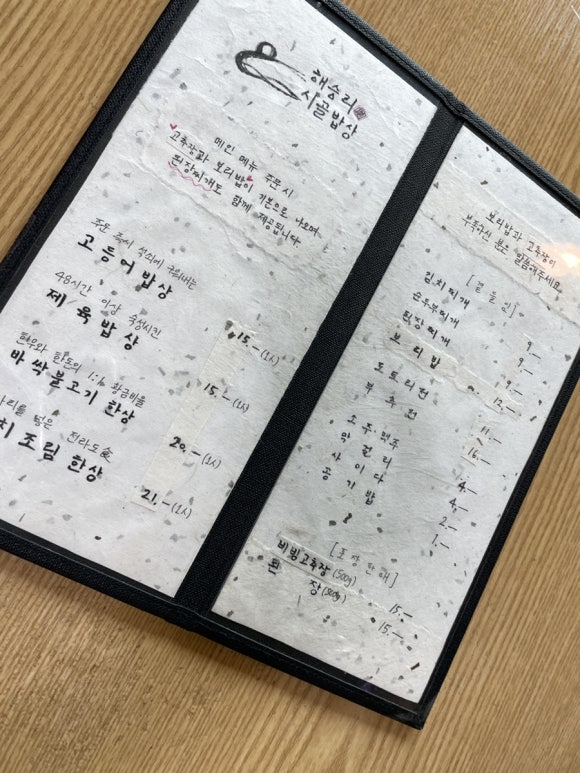 해승리
시골밥상
메인 메뉴 주문 시
고추장과 보리밥이 기본으로 나오며
된장찌개도 함께 제공됩니다.
주문 즉시 석쇠에 구워내는
고등어밥상
15.-(1人)
48시간 이상 숙성시킨
제육밥상
15.-(1人)
한우와 한돈의 1:1 황금비율
바싹불고기 한상
20.-(1人)
넣은 전라도食
조림한상
21.-(1人)
보리밥과 고추장이
부족하신 분은 말씀해주세요
[곁들임]
김치찌개 9.-
순두부찌개 9.-
된장찌개 9.-
보리밥 12.-
도토리전 11.-
부추전 16.-
소주.맥주 4.-
막걸리 4.-
사이다 2.-
공기밥 1.-
[포장판매]
비빔고추장(500g) 15.-
된장(500g) 15.-